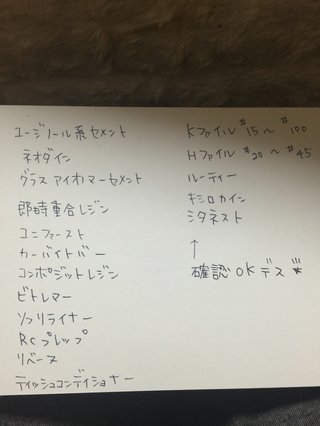 ユージノール系セメント
ネオダイン
グラスアイオノマーセメント
即時重合レジン
ユニファースト
カーバイトバー
コンポジットレジン
ビトレマー
ソフリライナー
RCプレップ
リベース
ティッシュコンディショナー
Kファイル #15〜#100
Hファイル #20〜#45
ルーティー
キシロカイン
シタネスト
↑
確認OKデス